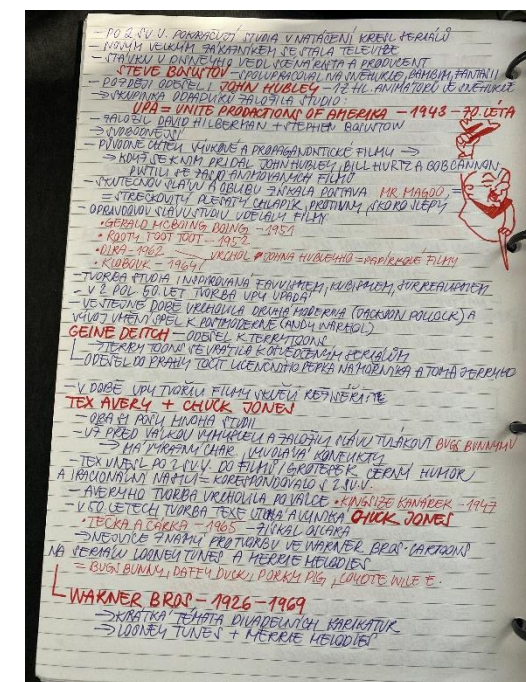 - PO 2.SV.V. POKRAČUJÍ STUDIA V NATÁČENÍ KRESL. SERIÁLŮ
- NOVÝM VELKÝM ZÁKAZNÍKEM SE STALA TELEVIZE
- STÁVKU V DISNEYHO VEDL SCENÁRISTA A PRODUCENT
STEVE BOUSTOV - SPOLUPRACOVAL NA SNĚHURCE, BAMBIM, FANTASII
- POZDĚJI ODEŠEL I JOHN HUBLEY - 1Z HL. ANIMÁTORŮ VE SNĚHURCE
→ SKUPINKA ODPADLÍKŮ ZALOŽILA STUDIO:
UPA = UNITE PRODACTIONS OF AMERIKA - 1943 - 70. LÉTA
- ZALOŽIL DAVID HILBERMAN + STEPHEN BOUSTOW
→ SVOBODNĚJŠÍ
- PŮVODNĚ CHTĚLI VÝUKOVÉ A PROPAGANDISTICKÉ FILMY →
→ KDYŽ SE K NIM PŘIDAL JOHN HUBLEY, BILL HURTZ A BOB CANNON,
PUSTILI SE ANIMOVANÝCH FILMŮ
- SKUTEČNOU SLÁVU A OBLIBU ZÍSKALA POSTAVA MR. MAGOO =
= STŘEČKOVITÝ PLEŠATÝ CHLAPÍK, PROTIVNÝ, SKORO SLEPÝ
- OPRAVDOVOU SLÁVU STUDIU UDĚLALY FILMY
• GERALD MCBOING BOING - 1951
• ROOTY TOOT TOOT - 1952
• DÍRA - 1962 VRCHOL JOHNA HUBLEYHO = PAPÍRKOVÉ FILMY
• KLOBOUK - 1964
- TVORBA STUDIA INSPIROVANÁ FAUVISMEM, KUBISMEM, SURREALISMEM
- V 2 POL. 50. LET TVORBA UPY UPADÁ
- VE STEJNÉ DOBĚ VRCHOLILA DRUHÁ MODERNA (JACKSON POLLOCK) A
VÝVOJ UMĚNÍ SPĚL K POSTMODERNĚ (ANDY WARHOL)
GEINE DEITCH - ODEŠEL K TERRYTOONS
→ TERRYTOONS SE VRÁTILA K OSVĚDČENÝM SERIÁLŮM
ODEŠEL DO PRAHY TOČIT LICENČNÍHO PEPKA NÁMOŘNÍKA A TOMA JERRYHO
- V DOBĚ UPY TVOŘILI FILMY SKVĚLÍ REŽISÉŘI
TEX AVERY + CHUCK JONES
- OBA SI PROŠLI MNOHA STUDII
- UŽ PŘED VÁLKOU VYMYSLELI A ZALOŽILI SLÁVU TULÁKOVI BUGS BUNNYMU
→ MÁ VÝRAZNÝ CHAR., VYVOLÁVÁ KONFLIKTY
- TEX VNESL PO 2.SV.V. DO FILMŮ / GROTESEK ČERNÝ HUMOR
A IRACIONÁLNÍ NÁSILÍ = KORESPONDOVALO S 2.SV.V.
- AVERYHO TVORBA VRCHOLILA PO VÁLCE • KINGSIZE KANÁREK - 1947
- V 50 LETECH TVORBA TEXE UTICHÁ A VYNIKÁ CHUCK JONES
• TEČKA A ČÁRKA - 1965 - ZÍSKAL OSCARA
→ NEJVÍCE ZNÁMÝ PRO TVORBU VE WARNER BROS. CARTOONS
NA SERIÁLU LOONEY TUNES A MERRIE MELODIES
= BUGS BUNNY, DAFFY DUCK, PORKY PIG, COYOTE WILE E.
WARNER BROS - 1926 - 1969
→ KRÁTKÁ TÉMATA DIVADELNÍCH KARIKATUR
→ LOONEY TUNES + MERRIE MELODIES